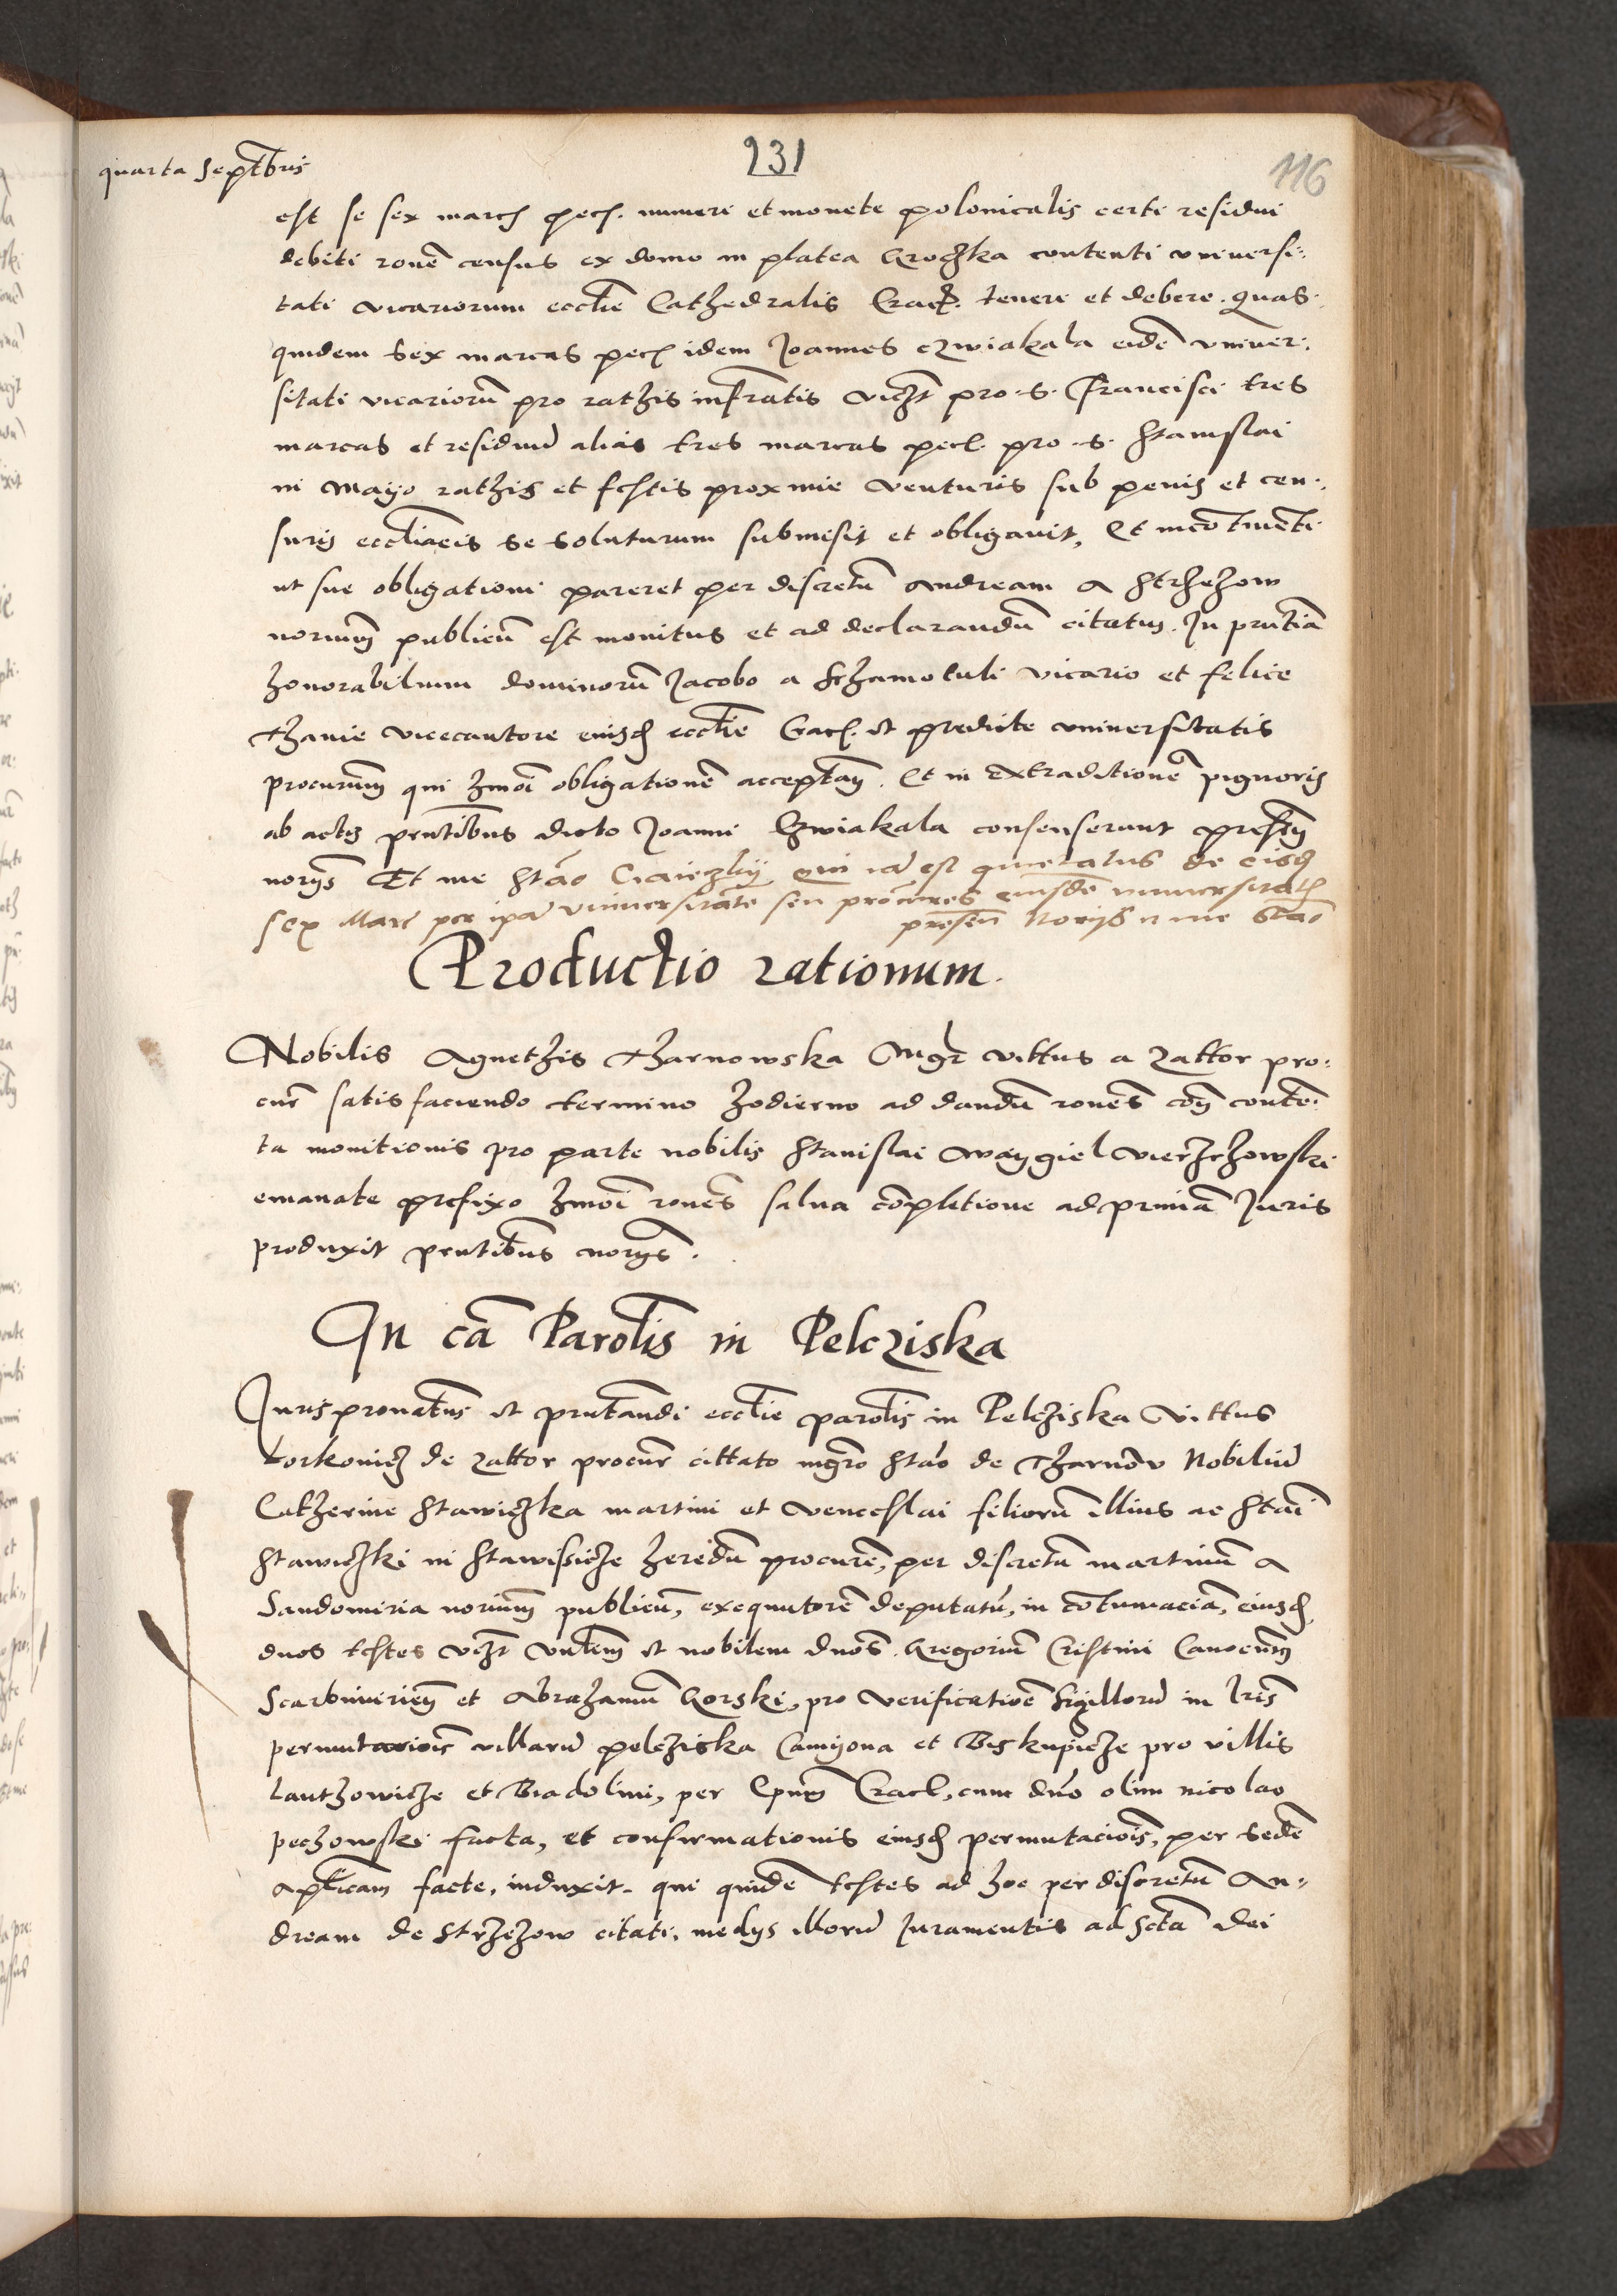 quarta Septbris
231
116
est se sex march pech. numeri et monete polonicalis certi residui
debiti ronē census ex domo in platea Groczka contenti universi:
tati vicariorum ecclie Cathedralis Crach. tenere et debere. Quas
quidem sex marcas pech idem Joannes Czwiakala eidē univer:
sitati vicariorū pro rathis infratis vichzt pro .s. Francisci tres
marcas et residuū alias tres marcas pech. pro .s. Stanislai
in Mayo rathis et festis proxime venturis sub penis et cen:
suris eccliacis se soluturum submisit et obligavit, Et incōtinēti
ut sue obligationi pareret per discretū Andream a Strzezow
noriuum publicū est monitus et ad declarandū citatus. In prntiā
honorabilium dominorū Jacobo a Schamotuli vicario et felice
Thanie vicecantore eiusd ecclie Crach. et predicte universitatis
procurum qui hmoi obligationē acceptarunt. Et in extraditionē pignoris
ab actis prntibus dicto Joanni Czwiakala consenserunt presen
norijs Et me Stāo qui est quietatus de eisd
sex Marc per ipā universitatē seu procures eiusdē universitatis
presen Norijs et me Stāo
Productio rationum.
Nobilis Agnethis Tharnowska Mgr vittus a Zattor pro:
cur satisfaciendo termino hodierno ad dandū ronēs cōn contē:
ta monitionis pro parte nobilis Stanislai Waygiel Vierzchowski
emanate prefixo hmoi ronēs salva cōpletione ad primā Juris
produxit prntibus norijs.
In cā Parolis in Pelcziska
Juris pronatus et prntandi ecclie parolis in Pelcziska Vittus
Korkonicz de Zattor procur cittato mgro Stāo de Tharnōv Nobiliū
Catherine Stawiczka martini et Venceslai filiorū illius ac Stāi
Stawiczki in Stawissicze heredū procurē, per discretū martinū a
Sandomiria noriuum publicū, exequutorē deputatū, in cōtumaciā, eiusd
duos testes vczt vnlem et nobilem dnos. Gregoriū Cristini Canocum
Scarbimirien et Abrahamū Gorski, pro verificatioē Sigillorū in lris
permutaciois villarū pelcziska Camyona et Biskupicze pro villis
Lanthowicze et Biadolini, per Epum Crach, cum dno olim nicolao
pechowski facta, et confirmationis eiusd permutaciois, per sedē
aplicam facte, induxit. qui quidē testes ad hoc per discretū An:
dream de Strzezow citati, medijs illorū Juramentis ad Sctā dei